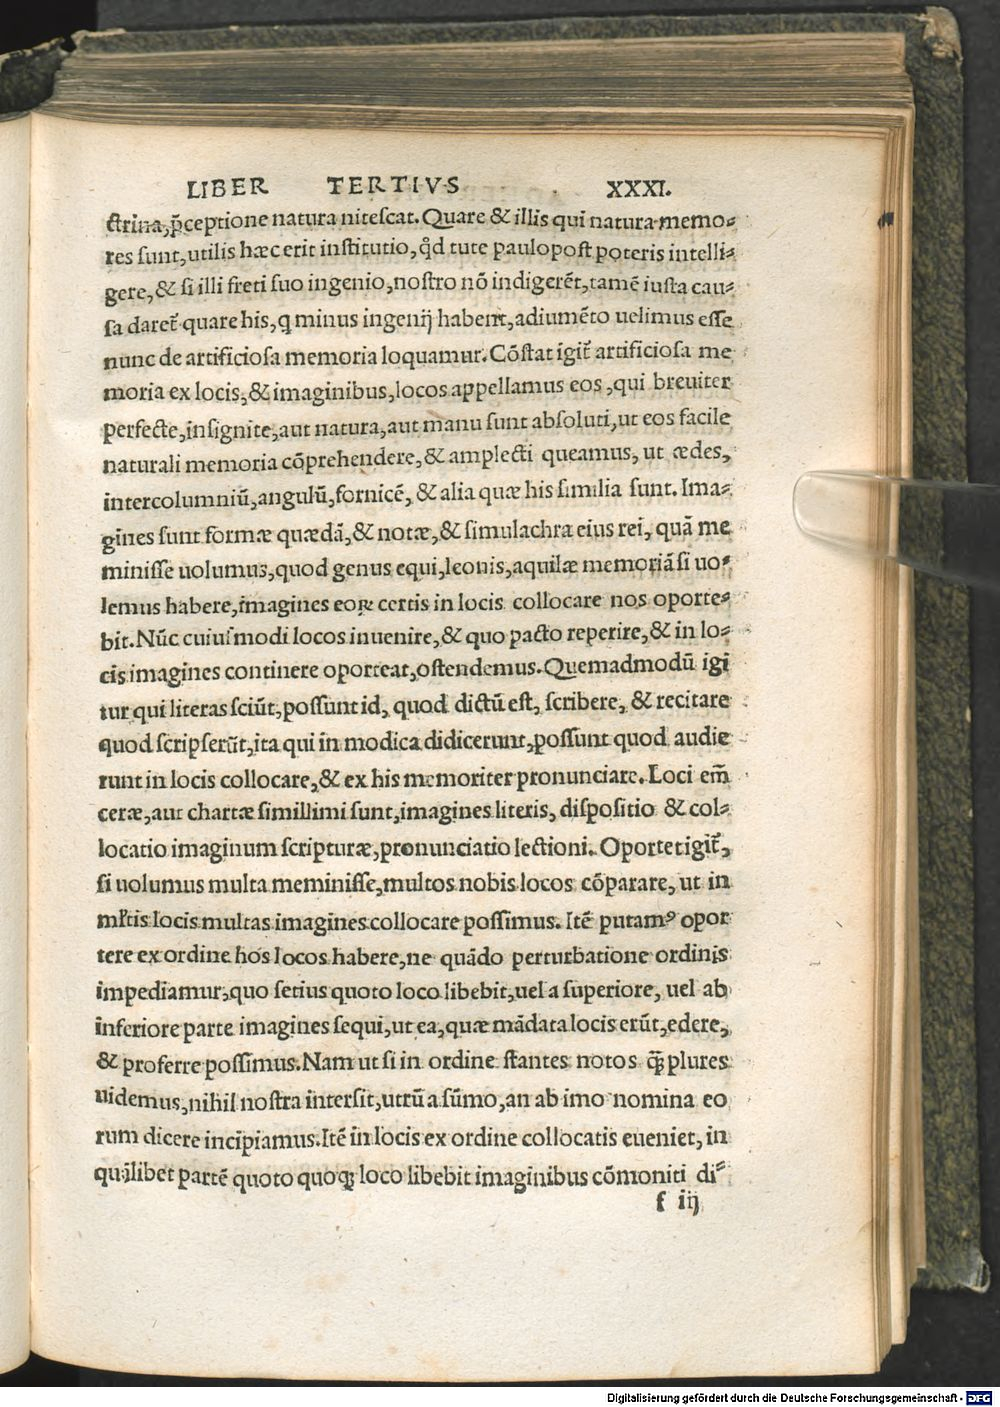 LIBER TERTIVS XXXI.
ctrina, p̄ceptione natura nitescat. Quare & illis qui natura memo⸗
res sunt, utilis hæc erit institutio, qd̓ tute paulopost poteris intelli⸗
gere, & si illi freti suo ingenio, nostro nō indigerēt, tamē iusta cau⸗
sa daret̃ quare his, q minus ingenij habent, adiumēto uelimus esse
nunc de artificiosa memoria loquamur. Cōstat igit̃ artificiosa me
moria ex locis, & imaginibus, locos appellamus eos, qui breuiter
perfecte, insignite, aut natura, aut manu sunt absoluti, ut eos facile
naturali memoria cōprehendere, & amplecti queamus, ut ædes,
intercolumniū, angulū, fornicē, & alia quæ his similia sunt. Ima⸗
gines sunt formæ quædā, & notæ, & simulachra eius rei, quā me
minisse uolumus, quod genus equi, leonis, aquilæ memoriā si uo⸗
lemus habere, imagines eoꝝ certis in locis collocare nos oporte⸗
bit. Nūc cuiuſmodi locos inuenire, & quo pacto reperire, & in lo⸗
cis imagines continere oporteat, ostendemus. Quemadmodū igi
tur qui literas sciūt, possunt id, quod dictū est, scribere, & recitare
quod scripserūt, ita qui in modica didicerunt, possunt quod audie
runt in locis collocare, & ex his memoriter pronunciare. Loci em̄
ceræ, aut chartæ simillimi sunt, imagines literis, dispositio & col⸗
locatio imaginum scripturæ, pronunciatio lectioni. Oportet igit̃,
si uolumus multa meminisse, multos nobis locos cōparare, ut in
ml̓tis locis multas imagines collocare possimus. Itē putamꝰ opor
tere ex ordine hos locos habere, ne quādo perturbatione ordinis
impediamur, quo setius quoto loco libebit, uel a superiore, uel ab
inferiore parte imagines sequi, ut ea, quæ mādata locis erūt, edere,
& proferre possimus. Nam ut si in ordine stantes notos q̄ꝫ plures
uidemus, nihil nostra intersit, utrū a sūmo, an ab imo nomina eo
rum dicere incipiamus. Itē in locis ex ordine collocatis eueniet, in
quālibet partē quoto quoqꝫ loco libebit imaginibus cōmoniti di⸗
f iij
Digitalisierung gefördert durch die Deutsche Forschungsgemeinschaft - DFG